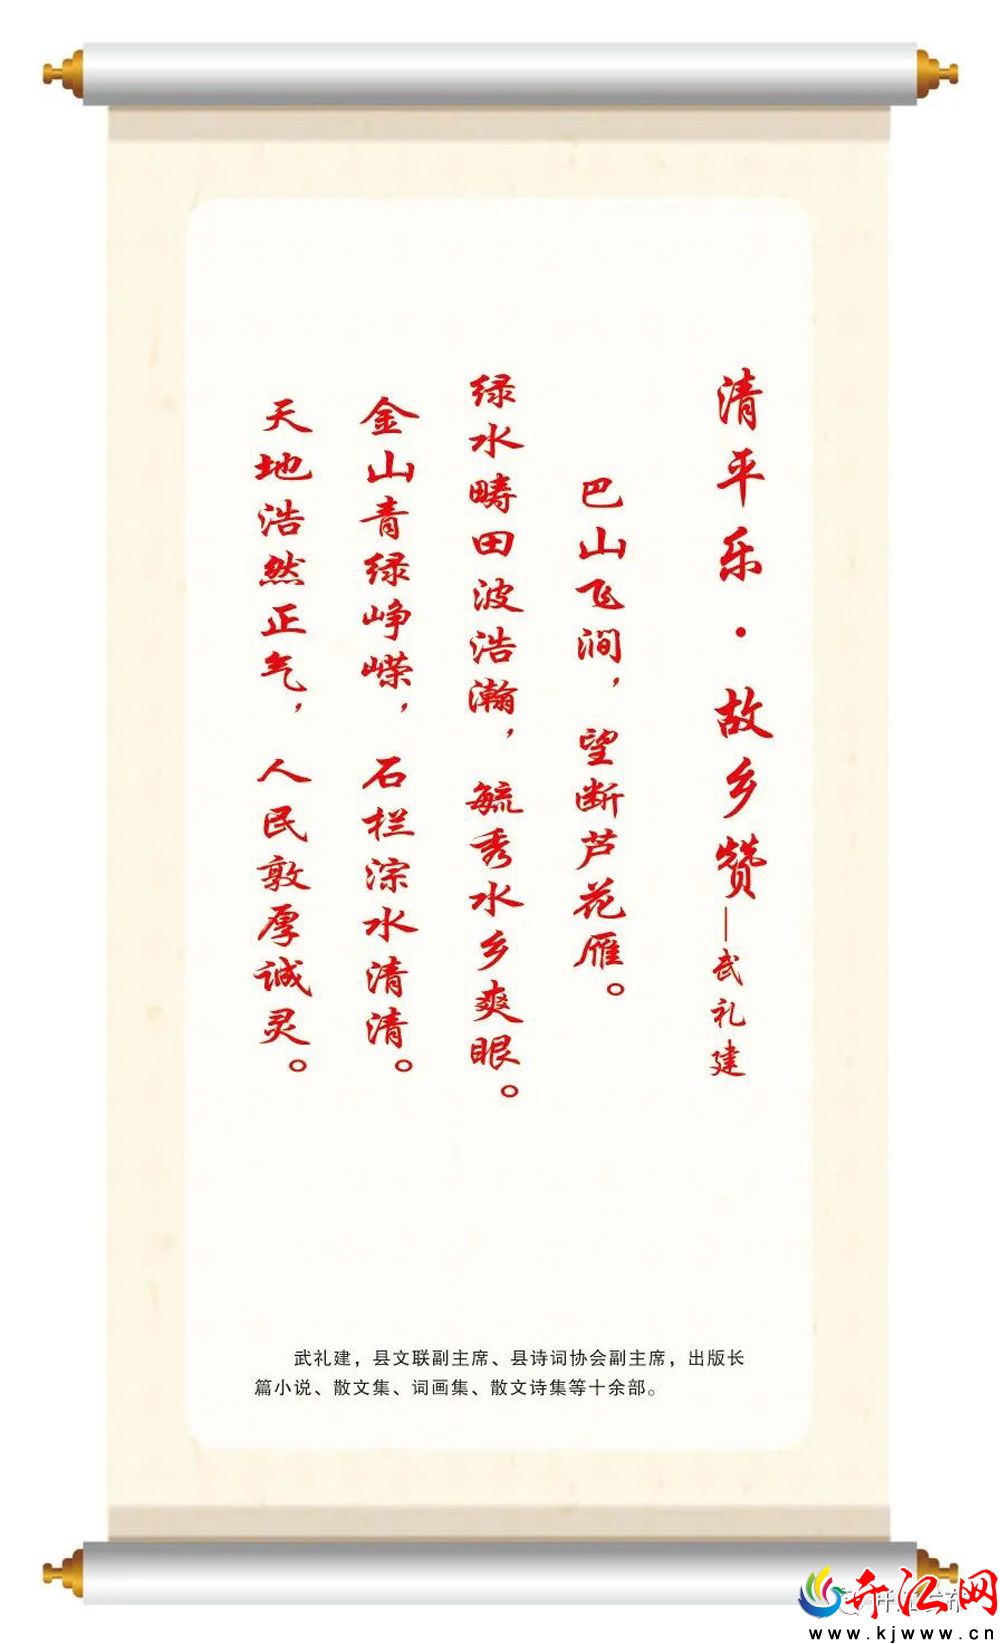 清平乐·故乡赞—武礼建
巴山飞涧，望断芦花雁。
绿水畴田波浩瀚，毓秀水乡爽眼。
金山青绿峥嵘，石栏淙水清清。
天地浩然正气，人民敦厚诚灵。
武礼建，县文联副主席、县诗词协会副主席，出版长
篇小说、散文集、词画集、散文诗集等十余部。
开江网
www.kjwww.cn